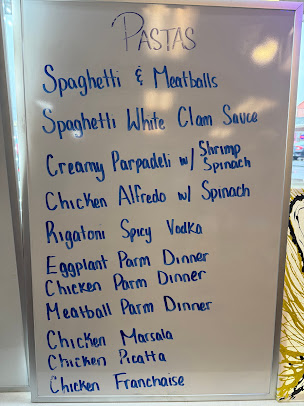 PASTAS
Spaghetti & Meatballs
Spaghetti White Clam Sauce
Creamy Parpadeli w/ Shrimp Spinach
Chicken Alfredo w/ Spinach
Rigatoni Spicy Vodka
Eggplant Parm Dinner
Chicken Parm Dinner
Meatball Parm Dinner
Chicken Marsala
Chicken Picatta
Chicken Franchaise